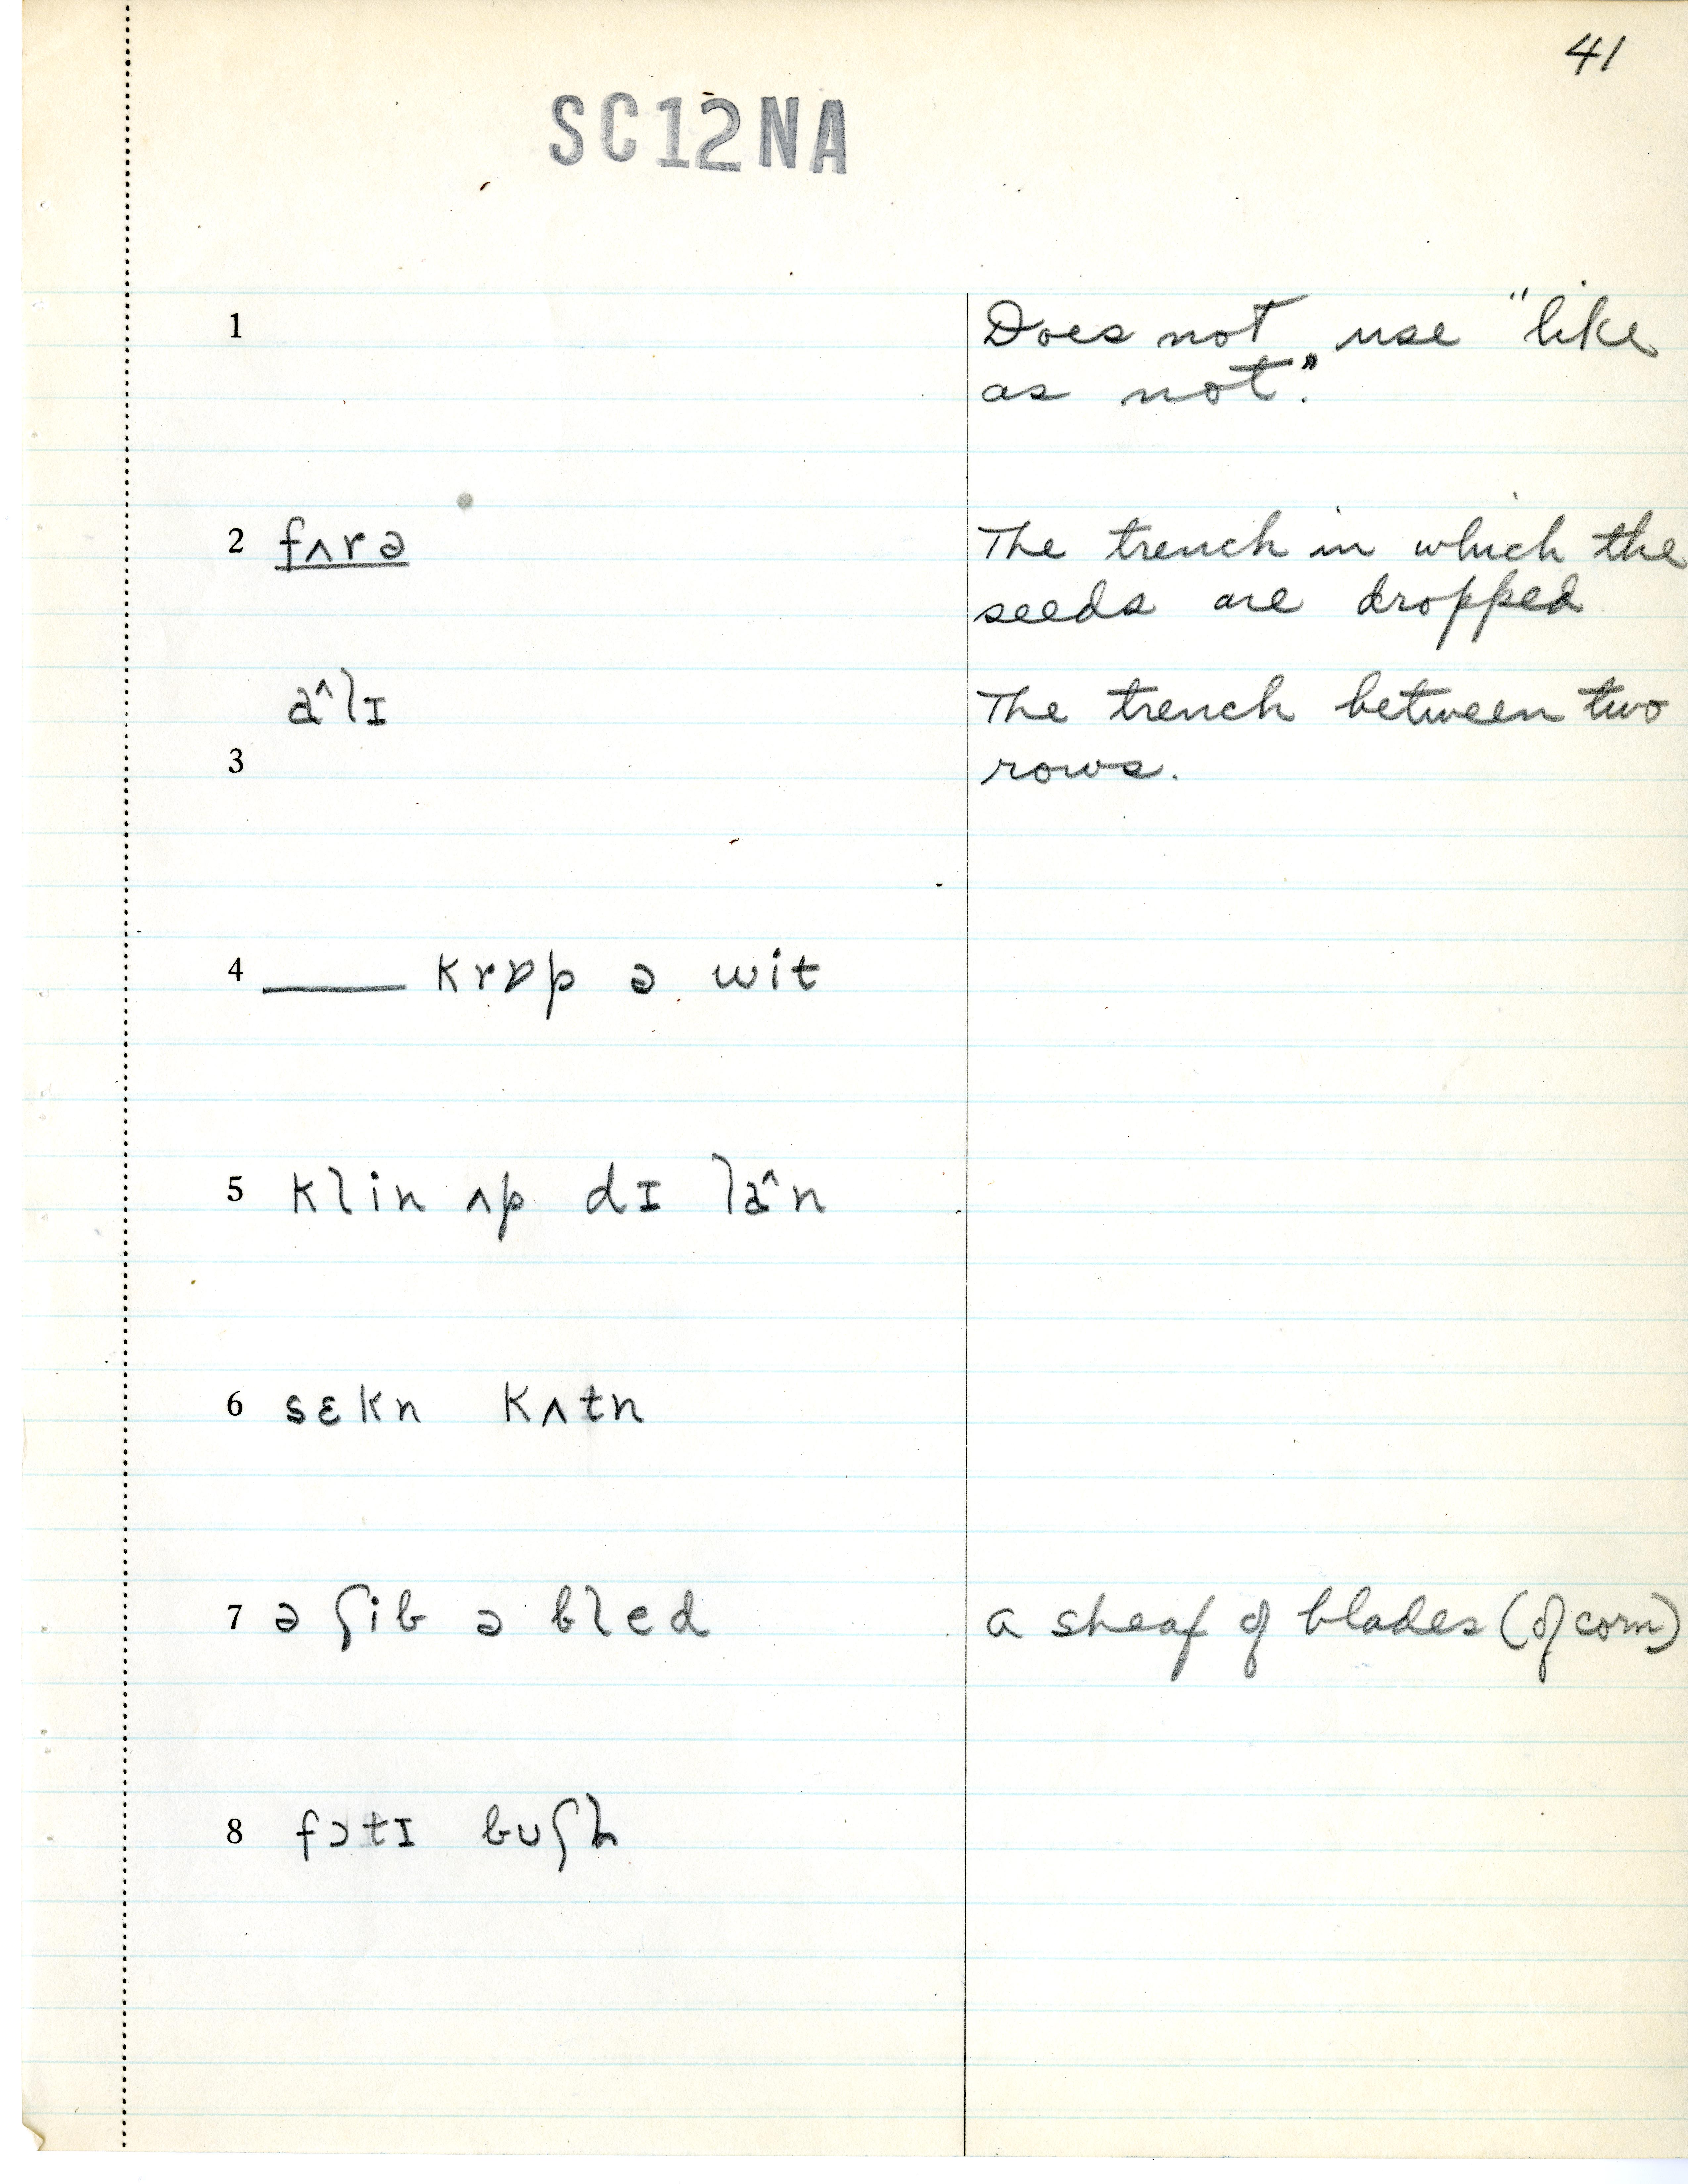 41
SC12NA
1 Does not use "like
as not."
2 fʌrə The trench in which the
seeds are dropped
a^lɪ The trench between two
3 rows.
4 ____ krɒp ə wit
5 klin ʌp dɪ la^n
6 sɛkn kʌtn
7 ə ʃib ə bled a sheaf of blades (of corn)
8 fɔtɪ buʃl